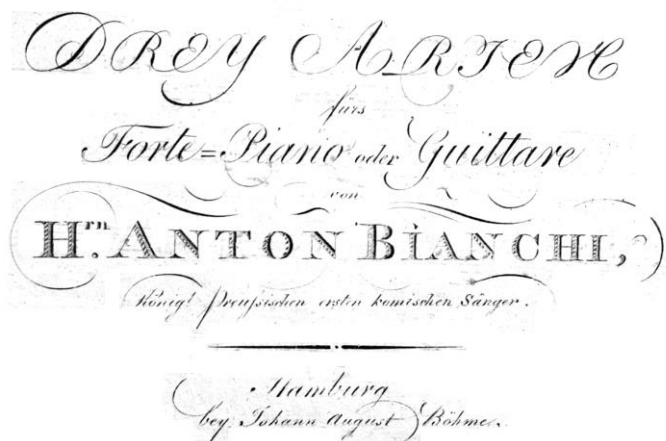 DREY ARIEN
fürs
Forte=Piano oder Guittare
von
H.rn ANTON BIANCHI,
Königl preußischen ersten komischen Sänger.
Hamburg
bey Johann August Böhme.